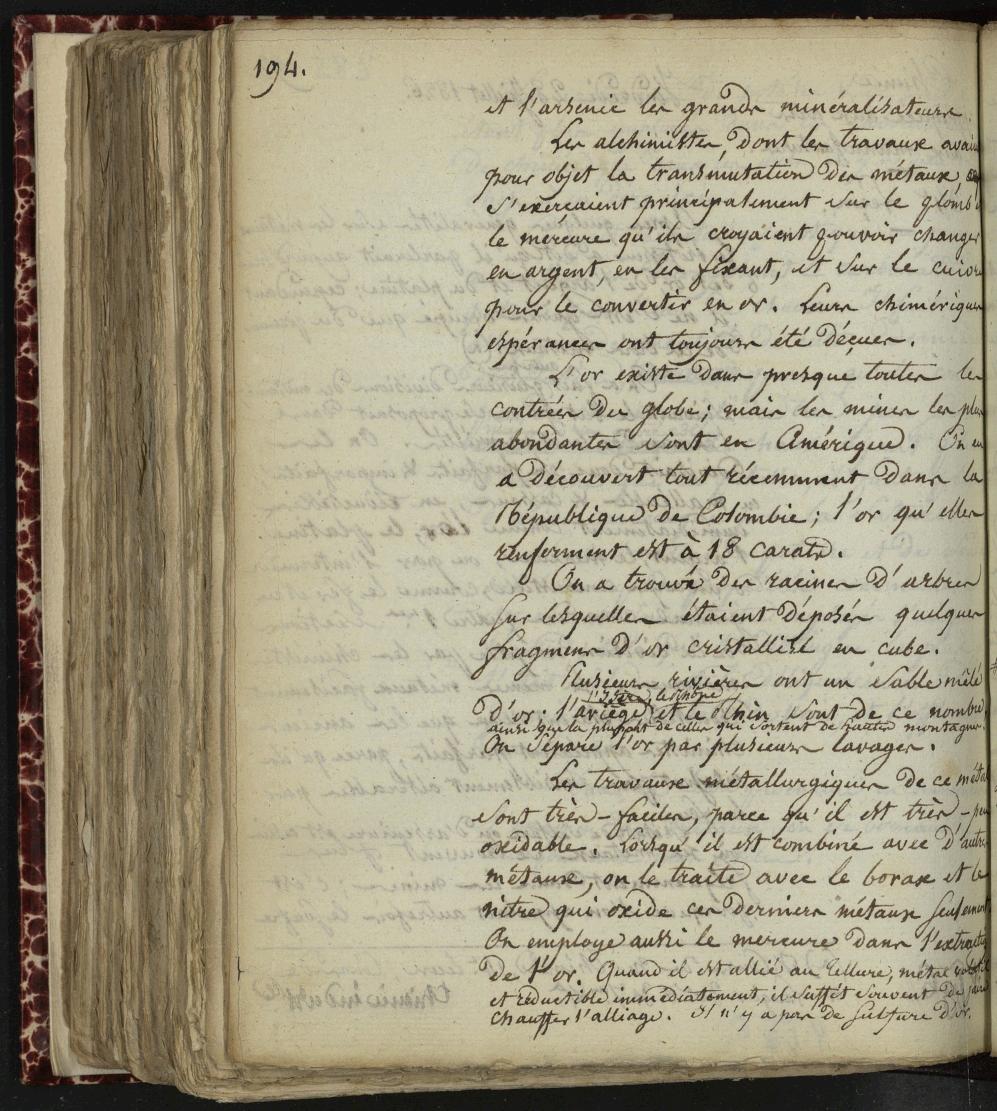 194.
et l'arsenic les grands minéralisateurs.
Les alchimistes, dont les travaux avai
pour objet la transmutation des métaux,
s'exerçaient principalement sur le plomb
le mercure qu'ils croyaient pouvoir changer
en argent, en les fixant, et sur le cuivre
pour le convertir en or. Leurs chimériques
espérances ont toujours été déçues.
L'or existe dans presque toutes les
contrées du globe; mais les mines les plus
abondantes sont en Amérique. On en
a découvert tout récemment dans la
République de Colombie; l'or qu'elles
renferment est à 18 carats.
On a trouvé des racines d'arbres
sur lesquelles étaient déposés quelques
fragmens d'or cristallisé en cube.
Plusieurs rivières ont un sable mêlé
l'Isère, le Rhône
d'or: l'ariège et le Rhin sont de ce nombre
ainsi que la plupart de celles qui sortent de hautes montagnes.
On sépare l'or par plusieurs lavages.
Les travaux métallurgiques de ce métal
sont très-faciles, parce qu'il est très-peu
oxidable. Lorsqu'il est combiné avec d'autres
métaux, on le traite avec le borax et le
nitre qui oxide ces derniers métaux seulement
On employe aussi le mercure dans l'extractio
de l'or. Quand il est allié au tellure, métal volatil
et réductible immédiatement, il suffit souvent de faire
chauffer l'alliage. Il n'y a pas de sulfure d'or.